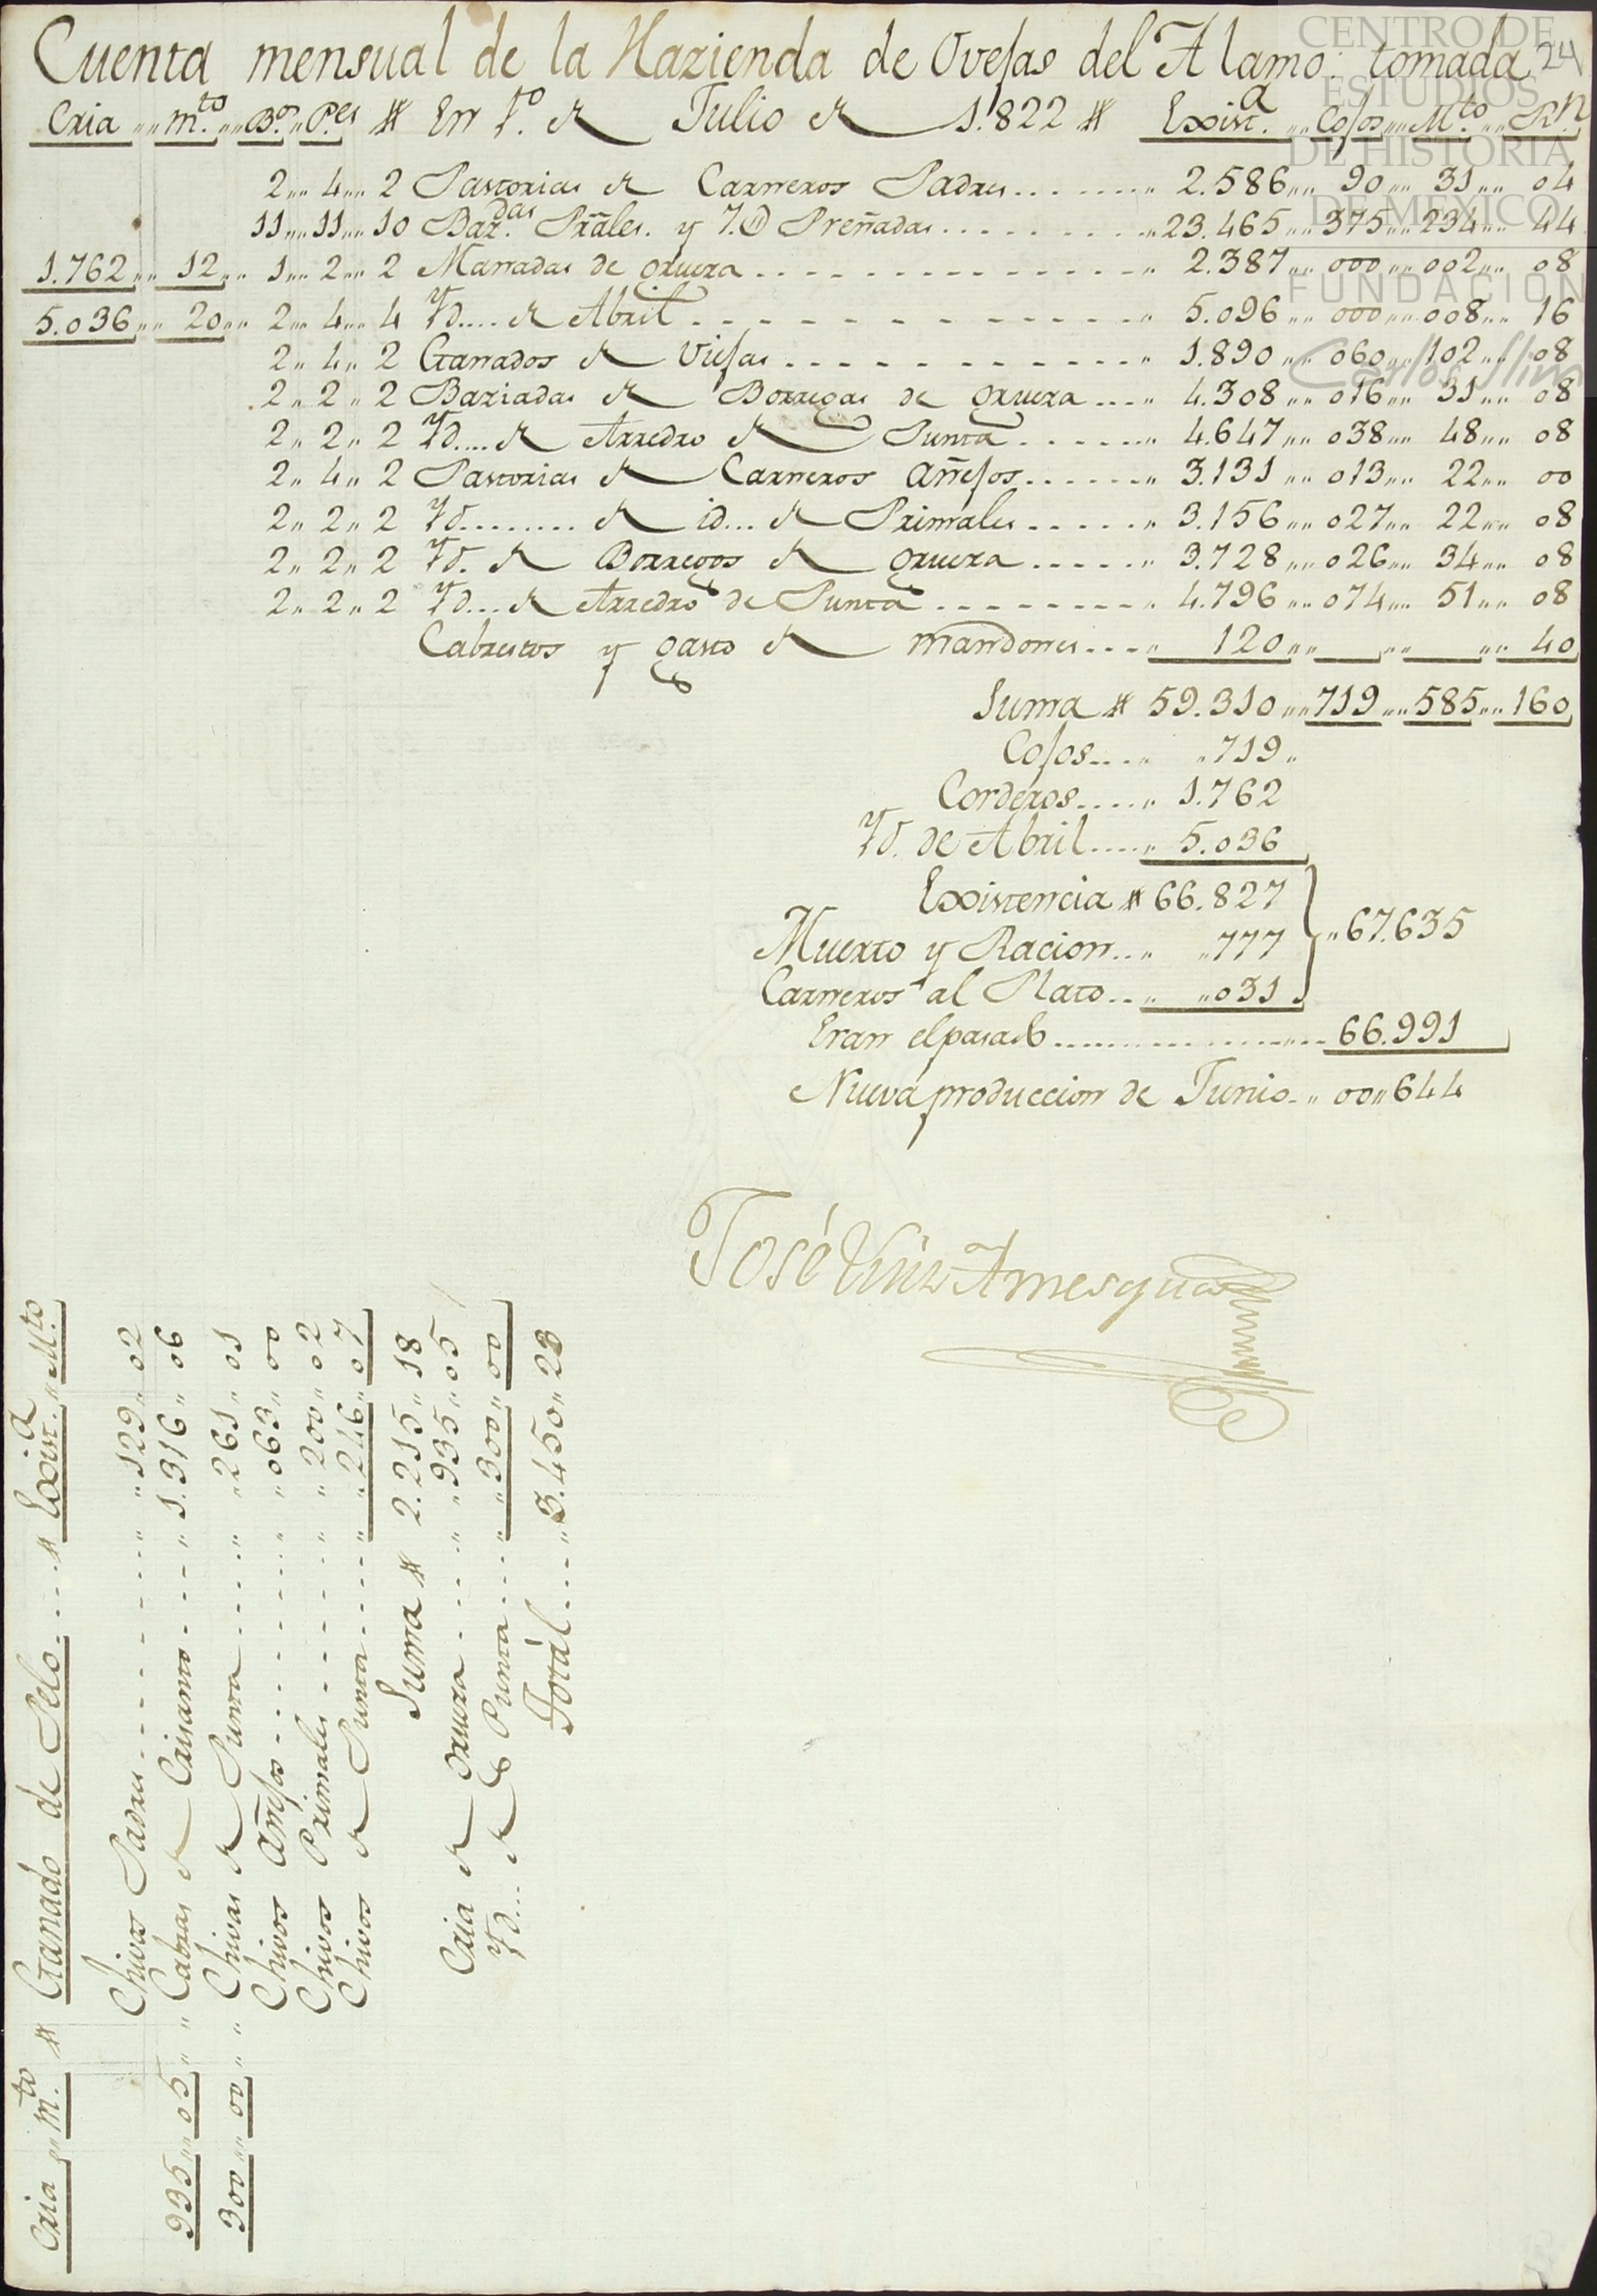 Cuenta mensual de la Hazienda de Ovejas del Alamo: tomada 24
Cria „ m.to „ B.s „ P.es # En 1.o de Julio de 1.822 # Exist.a „ Cojos „ M.to „ R.n
2 „ 4 „ 2 Pastorias de Carneros Padres „ 2.586 „ 90 „ 31 „ 04
11 „ 11 „ 10 Bar.das Pñales. y Y.d Preñadas „ 23.465 „ 375 „ 234 „ 44
1.762 „ 12 „ 1 „ 2 „ 2 Manadas de grueza „ 2.387 „ 000 „ 002 „ 08
5.036 „ 20 „ 2 „ 4 „ 4 Yd.... de Abril „ 5.096 „ 000 „ 008 „ 16
2 „ 4 „ 2 Ganados de Viejas „ 1.890 „ 060 „ 102 „ 08
2 „ 2 „ 2 Baziadas de Borregas de grueza „ 4.308 „ 016 „ 31 „ 08
2 „ 2 „ 2 Yd.... de Arredro de Punta „ 4.647 „ 038 „ 48 „ 08
2 „ 4 „ 2 Pastorias de Carneros Añejos „ 3.131 „ 013 „ 22 „ 00
2 „ 2 „ 2 Yd........ de id... de Primales „ 3.156 „ 027 „ 22 „ 08
2 „ 2 „ 2 Yd. de Borregos de grueza „ 3.728 „ 026 „ 34 „ 08
2 „ 2 „ 2 Yd... de Arredro de Punta „ 4.796 „ 074 „ 51 „ 08
Cabrestos y gasto de mandones „ 120 „ „ „ 40
Suma # 59.310 „ 719 „ 585 „ 160
Cojos.... „ 719 „
Corderos..... „ 1.762
Yd. de Abril..... „ 5.036
Existencia # 66.827
„ 67.635
Muerto y Racion... „ 777
Carneros al Plato... „ 031
Eran el pasado „ 66.991
Nueva produccion de Junio „ 00 „ 644
José Amesquita
Cria „ m.to # Ganado de Pelo # Exist.a „ M.to
Chivos Padres „ 129 „ 02
935 „ 05 „ „ Cabras de Crisanto „ 1.316 „ 06
300 „ 00 „ „ Chivas de Punta „ 261 „ 01
Chivos Añejos „ 063 „ 00
Chivos Primales „ 200 „ 02
Chivos de Punta „ 246 „ 07
Suma # 2.215 „ 18
Cria de grueza „ 935 „ 05
Yd... de Punta „ 300 „ 00
Totál „ 3.450 „ 23
CENTRO DE
ESTUDIOS
DE HISTORIA
DE MEXICO
FUNDACIÓN
Carlos Slim